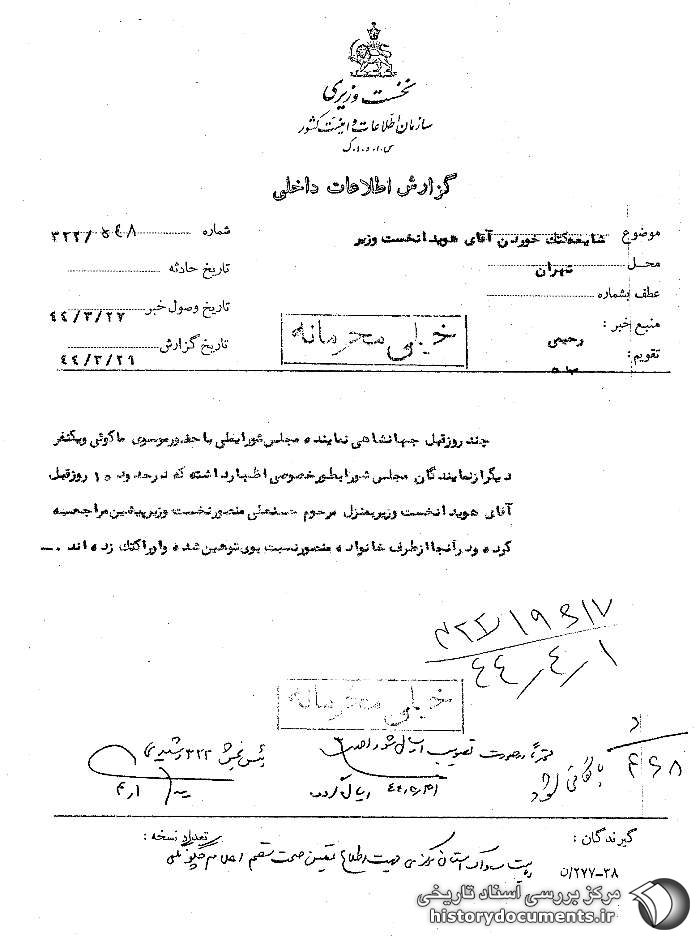 نخست وزیری
سازمان اطلاعات و امنیت کشور
س.ا.و.ا.ک
گزارش اطلاعات داخلی
موضوع شایعه کتك خوردن آقای هویدا نخست وزیر
شماره ۳۲۲/
محل تهران
تاریخ حادثه
عطف بشماره
تاریخ وصول خبر ۴۴/۳/۲۷
منبع خبر : رحیمی
تاریخ گزارش ۴۴/۳/۲۹
تقویم :
خیلی محرمانه
چند روز قبل جهانشاهی نماینده مجلس شورایملی با حضور موسوی ماکوئی و یکنفر
دیگر از نمایندگان مجلس شورا بطور خصوصی اظهار داشته که در حدود ۱۰ روز قبل
آقای هویدا نخست وزیر بمنزل مرحوم حسنعلی منصور نخست وزیر پیشین مراجعه
کرده و در آنجا از طرف خانواده منصور نسبت بوی توهین شده و او را کتك زده اند .
۴۴/۴/۱
خیلی محرمانه
بایگانی شود
رئیس بخش ۳۲۲ رشیدی
گیرندگان :
تعداد نسخه :
۲۷۷-۳۸/ن
مرکز بررسی اسناد تاریخی
historydocuments.ir